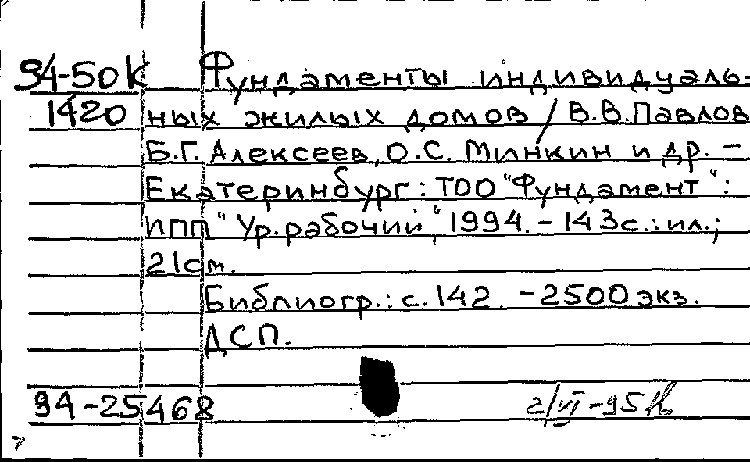 94-50К Фундаменты индивидуаль-
1420 ных жилых домов / В.В.Павлов
Б.Г. Алексеев, О.С. Минкин и др. –
Екатеринбург: ТОО "Фундамент":
ИПП "Ур.рабочий", 1994. – 143с.: ил.;
21см.
Библиогр.: с. 142. – 2500 экз.
ДСП.
94-25468